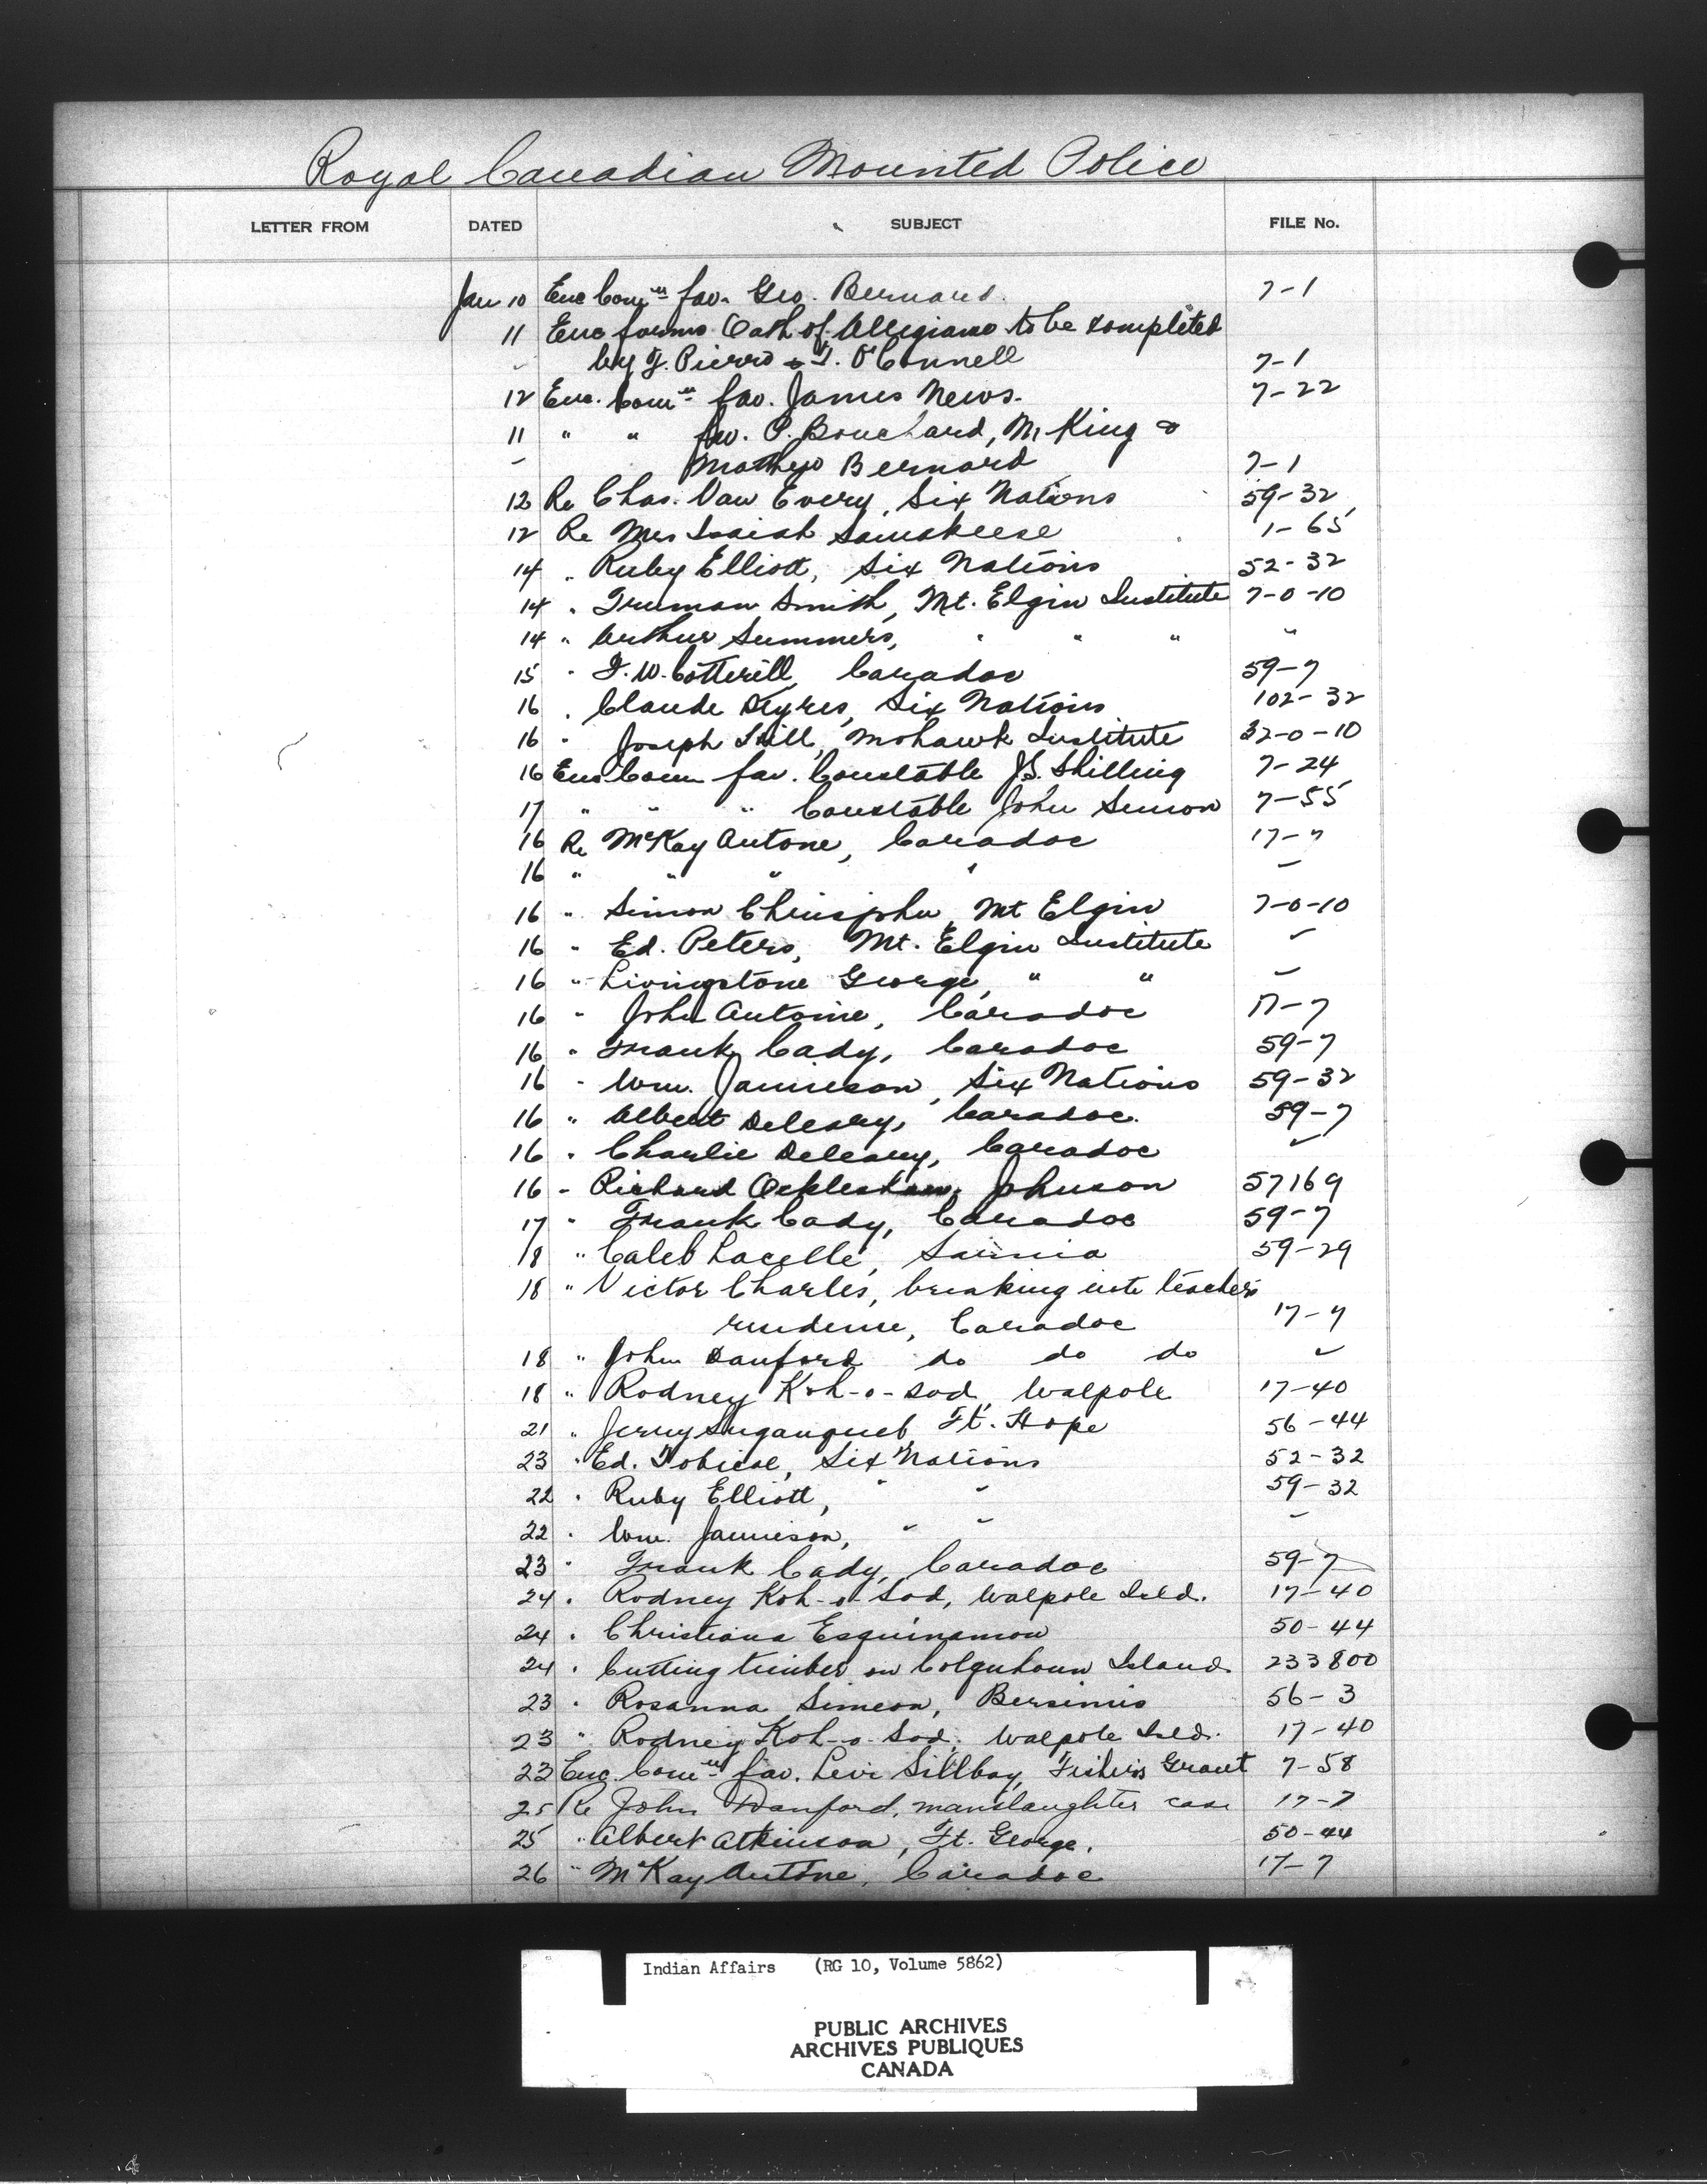 Royal Canadian Mounted Police
LETTER FROM DATED SUBJECT FILE No.
Jan 10 Enc Com'n fav. Geo. Bernard. 7-1
11 Enc forms Oath of Allegiance to be completed
by F. Pierro & T. O'Connell 7-1
12 Enc. Com'n fav. James News. 7-22
11 " " fav. P. Bouchard, M. King &
Bernard 7-1
12 Re Chas. Van Every, Six Nations 59-32
12 Re Mrs Isaiah 1-65
14 " Ruby Elliott, Six Nations 52-32
14 " Truman Smith, Mt. Elgin Institute 7-0-10
14 " Arthur Summers, " " " "
15 " F.W. Cotterill, Caradoc 59-7
16 " Claude Six Nations 102-32
16 " Joseph Mohawk Institute 32-0-10
16 Enc Comn fav. Constable J.S. Shilling 7-24
17 " " " Constable John Simon 7-55
16 Re McKay Antone, Caradoc 17-7
16 " " " " "
16 " Simon Mt Elgin 7-0-10
16 " Ed. Peters, Mt. Elgin Institute "
16 " Livingstone George, " " "
16 " John Antoine, Caradoc 17-7
16 " Frank Cady, Caradoc 59-7
16 " Wm. Jamieson, Six Nations 59-32
16 " Albert Deleary, Caradoc. 59-7
16 " Charlie Deleary, Caradoc "
16 " Richard Johnson 57169
17 " Frank Cady, Caradoc 59-7
18 " Caleb Lacelle, Sarnia 59-29
18 " Victor Charles, breaking into teachers
residence, Caradoc 17-7
18 " John Danford do do do "
18 " Rodney Koh-o-sod, Walpole 17-40
21 " Jerry Ft. Hope 56-44
23 " Ed. Tobicoe, Six Nations 52-32
22 " Ruby Elliott, " " 59-32
22 " Wm. Jamieson, " " "
23 " Frank Cady, Caradoc 59-7
24 " Rodney Koh-o-Sod, Walpole Isld. 17-40
24 " Christiana Esquinamow 50-44
24 " Cutting timber on Colquhoun Island. 233800
23 " Rosanna Simeon, Bersimis 56-3
23 " Rodney Koh-o-Sod, Walpole Isld. 17-40
23 Enc. Com'n fav. Levi Sillboy, Fishers Grant 7-58
25 Re John Danford, manslaughter case 17-7
25 " Albert Atkinson, Ft. George. 50-44
26 " McKay Antone, Caradoc 17-7
Indian Affairs (RG 10, Volume 5862)
PUBLIC ARCHIVES
ARCHIVES PUBLIQUES
CANADA